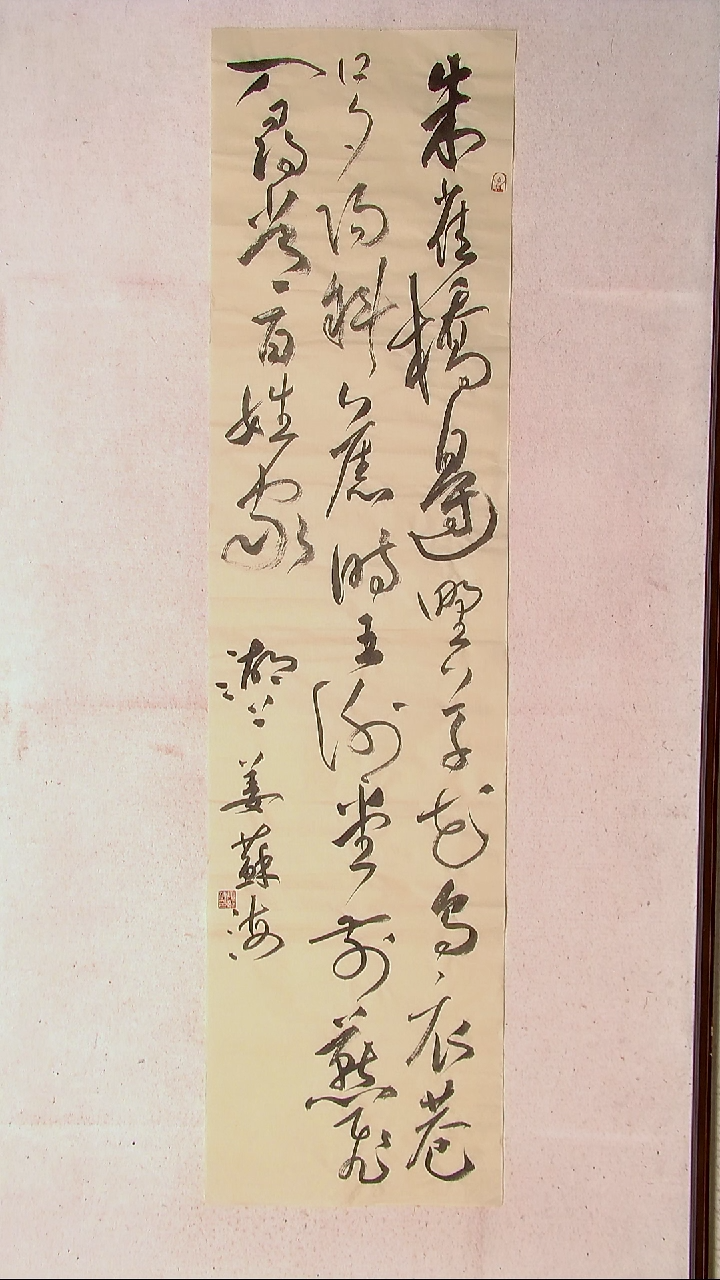 朱雀橋邊野草花烏衣巷
口夕陽斜舊時王謝堂前燕飛
入尋常百姓家
湖上姜蘇海